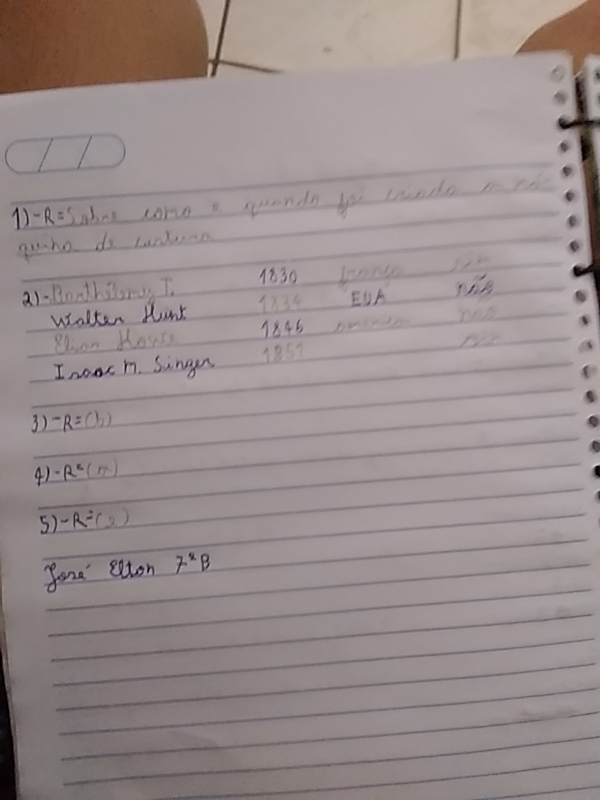 1)-R=Sobre como e quando foi criada a má-
quina de costura
2)-Barthélemy T. 1830 frança sim
Walter Hunt 1834 EUA não
Elias Howe 1846 não
Isaac M. Singer 1851
3)-R=(b)
4)-R=(a)
5)-R=
José Elton 7ºB